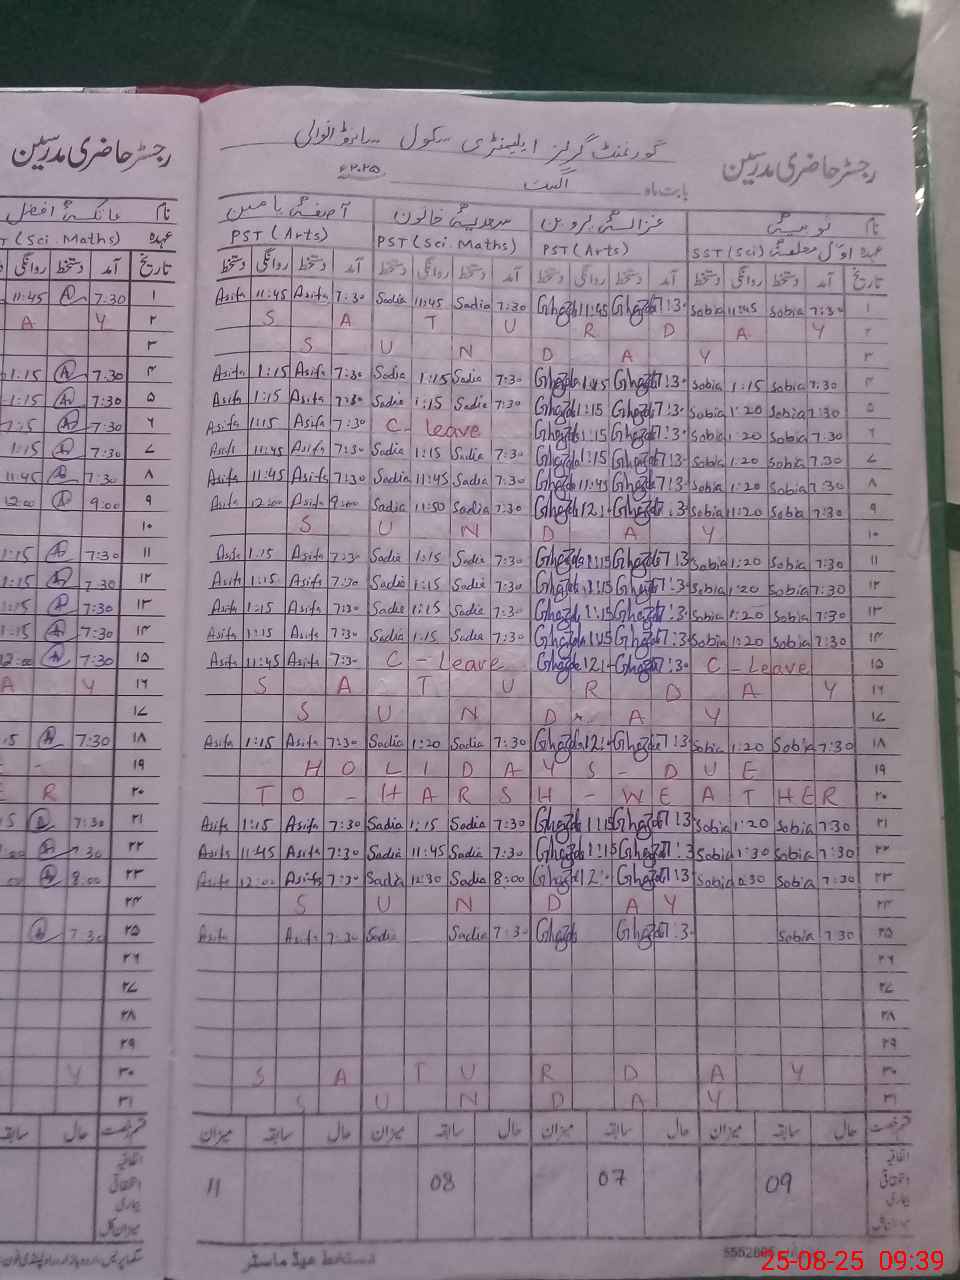 رجسٹر حاضری مدرسین
گورنمنٹ گرلز ایلیمنٹری سکول
رجسٹر حاضری مدرسین
بابت ماہ اگست ۲۰۲۵ء
نام ثوبیہ غزالہ پروین سعدیہ خاتون آصفہ یامین
عہدہ SST (Sci) PST (Arts) PST (Sci. Maths) PST (Arts)
T (Sci. Maths) عہدہ
تاریخ آمد دستخط روانگی دستخط آمد دستخط روانگی دستخط آمد دستخط روانگی دستخط آمد دستخط روانگی دستخط
11:45 7:30 ۱ Asifa 11:45 Asifa 7:30 Sadia 11:45 Sadia 7:30 Ghazala 11:45 Ghazala 7:30 Sobia 11:45 Sobia 7:30 ۱
A Y ۲ S A T U R D A Y ۲
۳ S U N D A Y ۳
1:15 7:30 ۴ Asifa 1:15 Asifa 7:30 Sadia 1:15 Sadia 7:30 Ghazala Ghazala 7:3- Sobia 1:15 Sobia 7:30 ۴
1:15 7:30 ۵ Asifa 1:15 Asifa 7:30 Sadia 1:15 Sadia 7:30 Ghazala 1:15 Ghazala 7:3- Sobia 1:20 Sobia 7:30 ۵
7:30 ۶ Asifa 1:15 Asifa 7:30 C - Leave Ghazala 1:15 Ghazala 7:3- Sobia 1:20 Sobia 7:30 ۶
1:15 7:30 ۷ Asifa 11:45 Asifa 7:30 Sadia 1:15 Sadia 7:30 Ghazala 1:15 Ghazala 7:3- Sobia 1:20 Sobia 7:30 ۷
11:45 7:30 ۸ Asifa 11:45 Asifa 7:30 Sadia 11:45 Sadia 7:30 Ghazala 11:45 Ghazala 7:3- Sobia 1:20 Sobia 7:30 ۸
12:00 9:00 ۹ Asifa 12:00 Asifa 9:00 Sadia 11:50 Sadia 7:30 Ghazala Ghazala Sobia 11:20 Sobia 7:30 ۹
۱۰ S U N D A Y ۱۰
1:15 7:30 ۱۱ Asifa 1:15 Asifa 7:30 Sadia 1:15 Sadia 7:30 Ghazala 1:15 Ghazala 7:3- Sobia 1:20 Sobia 7:30 ۱۱
1:15 7:30 ۱۲ Asifa 1:15 Asifa 7:30 Sadia 1:15 Sadia 7:30 Ghazala 1:15 Ghazala 7:3- Sobia 1:20 Sobia 7:30 ۱۲
1:15 7:30 ۱۳ Asifa 1:15 Asifa 7:30 Sadia 1:15 Sadia 7:30 Ghazala 1:15 Ghazala 7:3- Sobia 1:20 Sobia 7:30 ۱۳
1:15 7:30 ۱۴ Asifa 1:15 Asifa 7:30 Sadia 1:15 Sadia 7:30 Ghazala Ghazala 7:3- Sobia 1:20 Sobia 7:30 ۱۴
12:00 7:30 ۱۵ Asifa 11:45 Asifa 7:3- C - Leave Ghazala Ghazala 7:30 C - Leave ۱۵
A Y ۱۶ S A T U R D A Y ۱۶
۱۷ S U N D A Y ۱۷
15 7:30 ۱۸ Asifa 1:15 Asifa 7:30 Sadia 1:20 Sadia 7:30 Ghazala Ghazala 7:3- Sobia 1:20 Sobia 7:30 ۱۸
۱۹ H O L I D A Y S - D U E ۱۹
E R ۲۰ T O - H A R S H - W E A T H E R ۲۰
5 7:30 ۲۱ Asifa 1:15 Asifa 7:30 Sadia 1:15 Sadia 7:30 Ghazala 1:15 Ghazala 7:3- Sobia 1:20 Sobia 7:30 ۲۱
:30 ۲۲ Asifa 11:45 Asifa 7:30 Sadia 11:45 Sadia 7:30 Ghazala 1:15 Ghazala 7:3- Sobia 1:30 Sobia 7:30 ۲۲
00 8:00 ۲۳ Asifa 12:00 Asifa 7:30 Sadia 12:30 Sadia 8:00 Ghazala Ghazala 7:3- Sobia Sobia 7:30 ۲۳
۲۴ S U N D A Y ۲۴
7:30 ۲۵ Asifa Asifa 7:30 Sadia Sadia 7:3- Ghazala Ghazala 7:3- Sobia 7:30 ۲۵
۲۶ ۲۶
۲۷ ۲۷
۲۸ ۲۸
۲۹ ۲۹
Y ۳۰ S A T U R D A Y ۳۰
۳۱ S U N D A Y ۳۱
قسم رخصت حال سابقہ میزان حال سابقہ میزان حال سابقہ میزان حال سابقہ میزان
قسم رخصت حال سابقہ
اتفاقیہ
استحقاقی
بیماری
میزان کل
09 07 08 11
دستخط ہیڈ ماسٹر
25-08-25 09:39